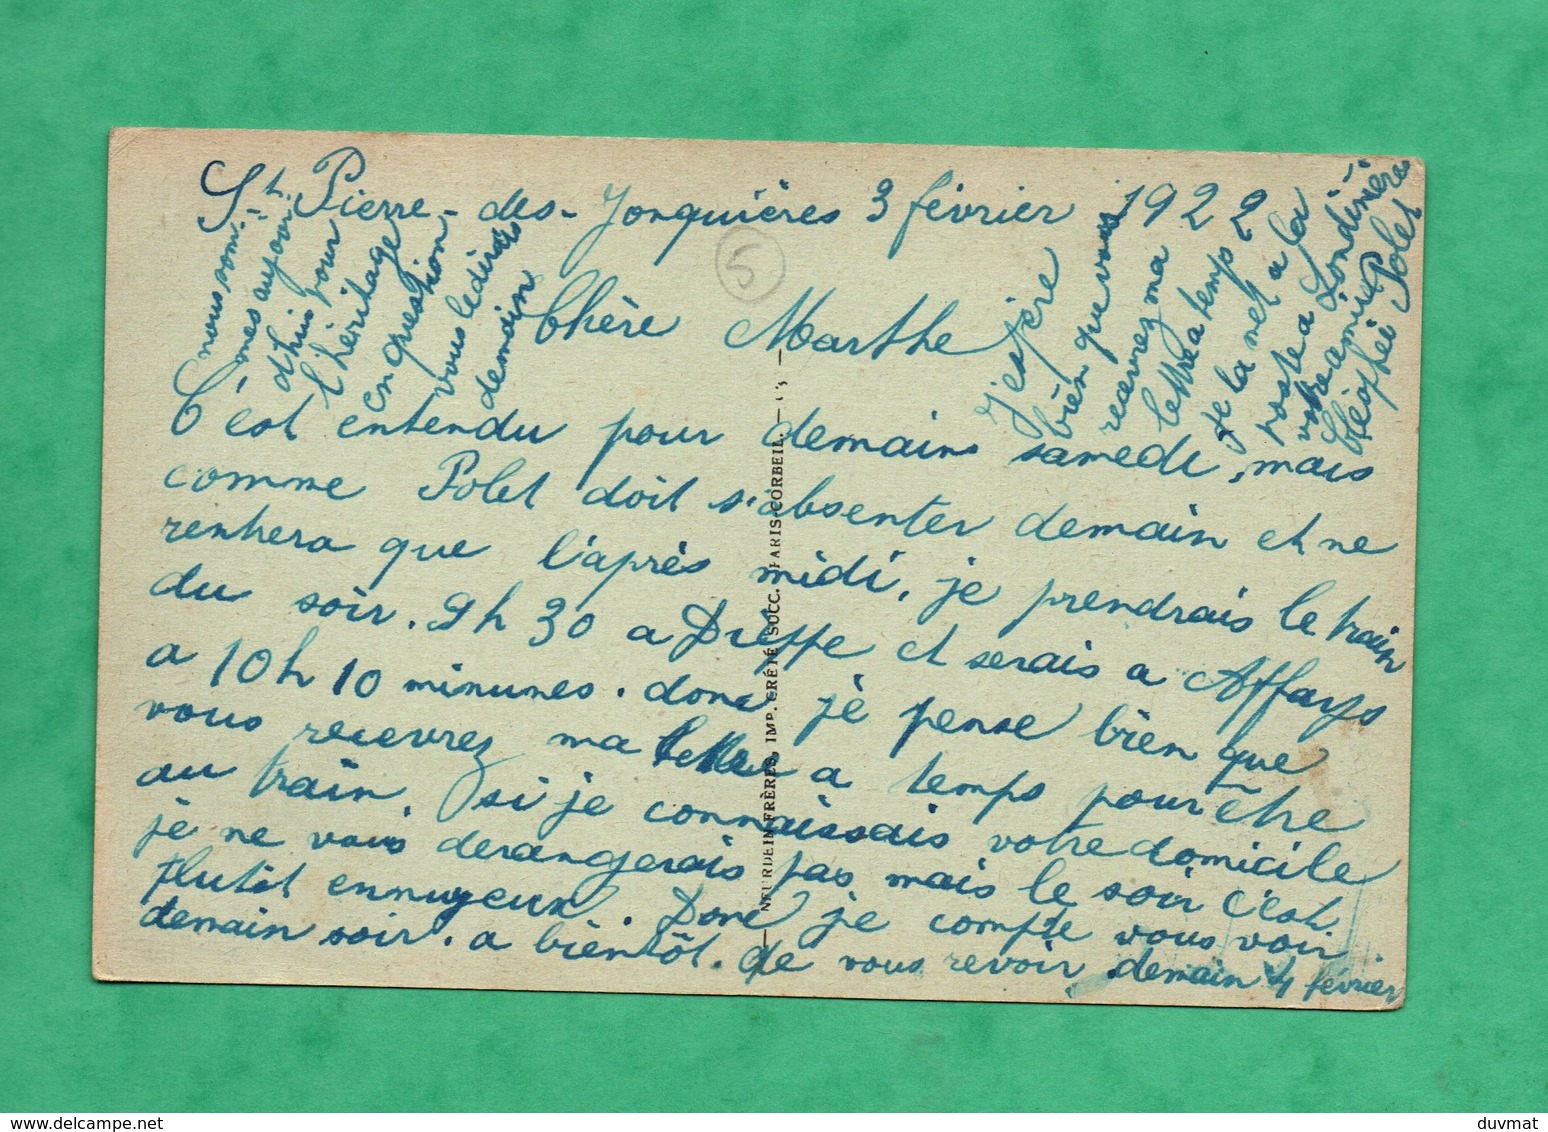 St Pierre-des-Jonquières 3 février 1922
Chère Marthe
C'est entendu pour demain samedi, mais
comme Polet doit s'absenter demain et ne
renthera que l'après midi, je prendrais le train
du soir. 9h 30 a Dieppe et serais a Affays
a 10h 10 minunes. donc je pense bien que
vous recevrez ma lettre a temps pour être
au train. si je connaissais votre domicile
je ne vais derangerais pas, mais le soir c'est
plutôt ennuyeux. Donc je compte vous voir
demain soir. a bientôt. de vous revoir demain 4 février
nous som-
mes aujour
dhui pour
l'héritage
en question
vous le dérès
demain
j'espère
bien que vous
recevrez ma
lettre a temps
je la met a la
poste a Londinières
votre amie
Cléophée Polet
5
NEURDEIN FRÈRES, IMP. CRÉTÉ SUCC. PARIS-CORBEIL. —
duvmat